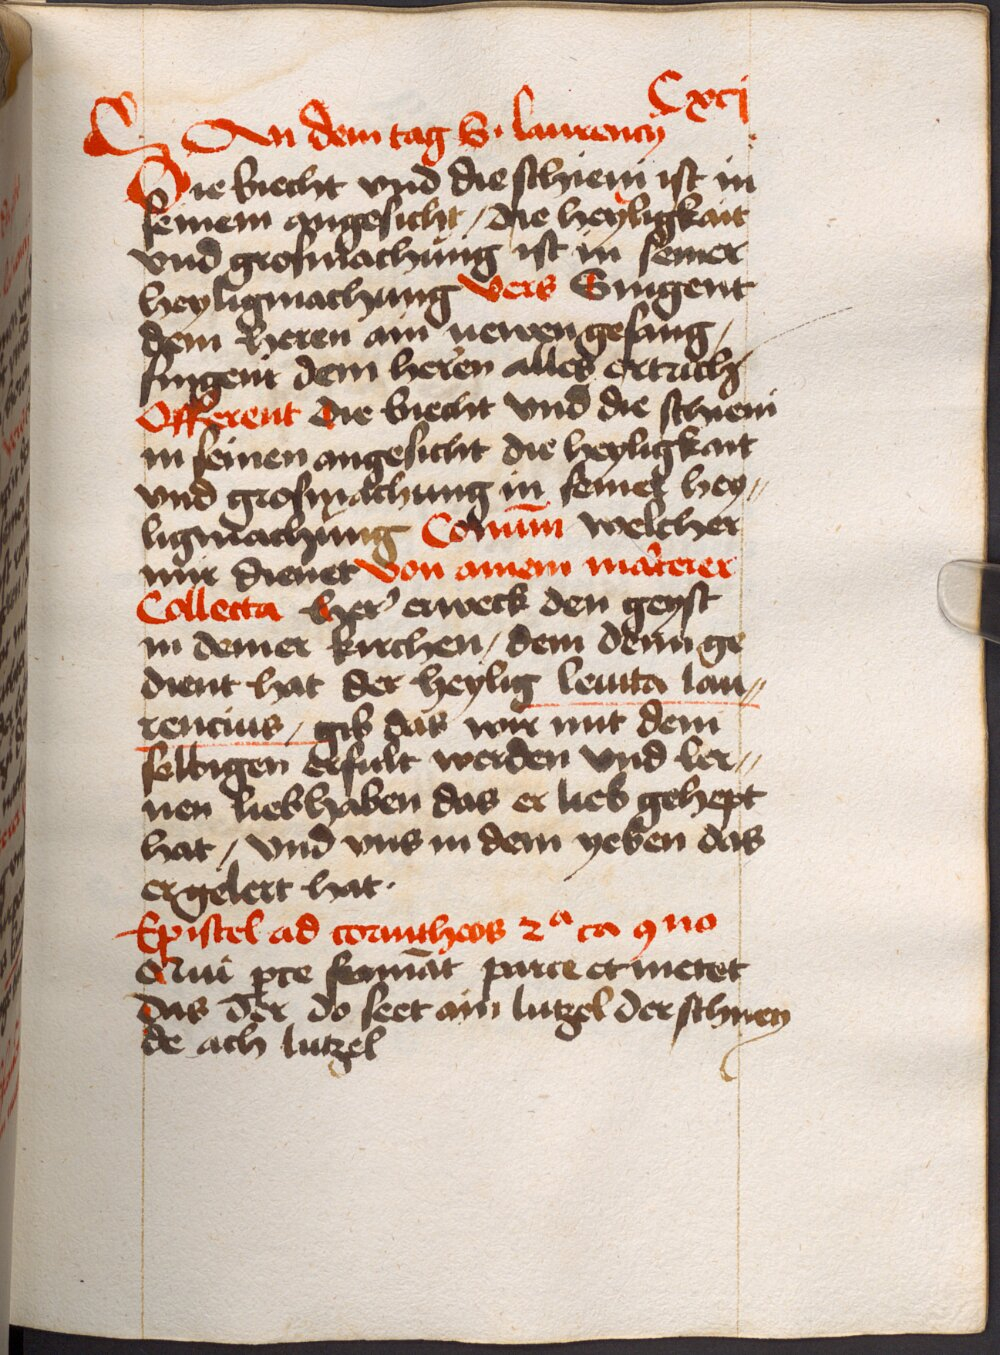 Cxcj
An dem tag S. laurency
Die biecht vnd die schieni ist in
seinem angesicht / die heyligkait
vnd grosmachung ist in seiner
heyligmachung vers Singent
dem heren ain newen gesang /
singent dem heren alles ertrich
Offerent die biecht vnd die schieni
in seinen angesicht die heyligkait
vnd grosmachung in seiner hey//
ligmachung Comūm welcher
mir dienet von ainem marterer
Collecta her erweck den geyst
in deiner kirchen / dem denn ge
dient hat der heylig leuita lau//
rencius / gib das wir mit dem
selbigen erfult werden vnd ler//
nen liebhaben das er lieb gehept
hat / vnd vns in dem yeben das
er gelert hat .
Epistel ad corintheos 2ᵃ ca 9no
Qui pce semināt parce et metet
das der do seet ain lutzel der schney
de ach lutzel